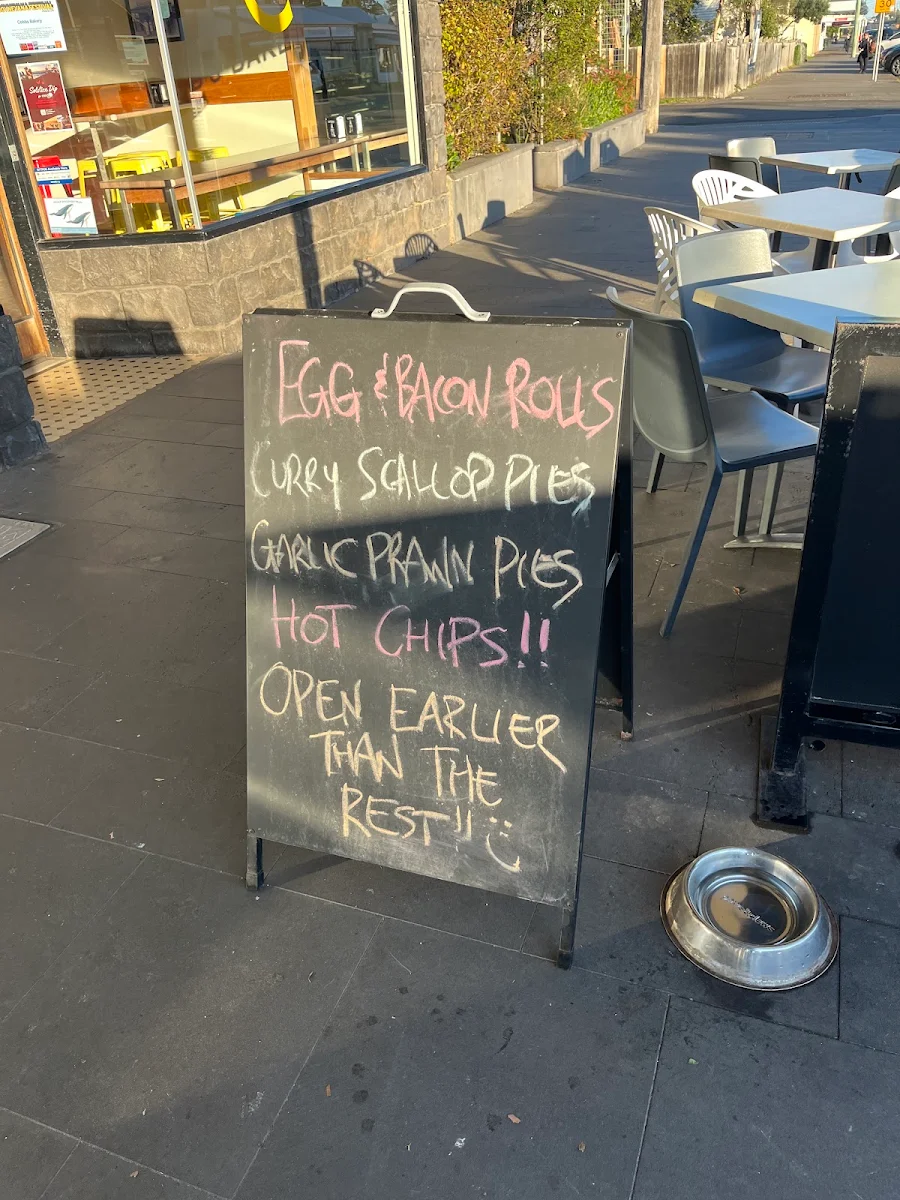 EGG & BACON ROLLS
CURRY SCALLOP PIES
GARLIC PRAWN PIES
HOT CHIPS!!
OPEN EARLIER
THAN THE
REST!! :)